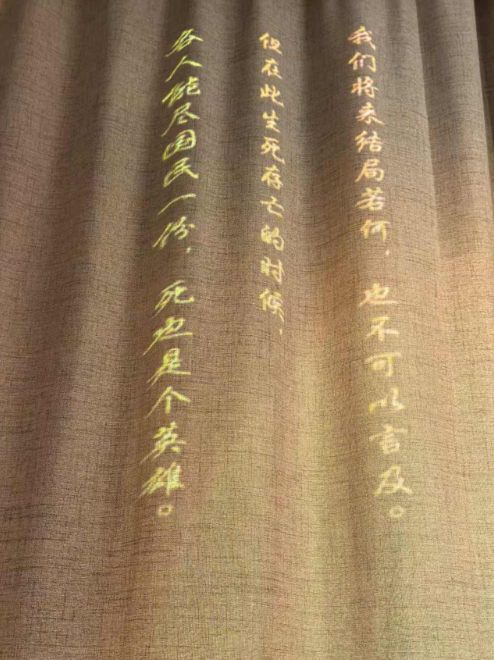 我们将来结局若何，也不可以言及。
但在此生死存亡的时候，
各人能尽国民一份，死也是个英雄。